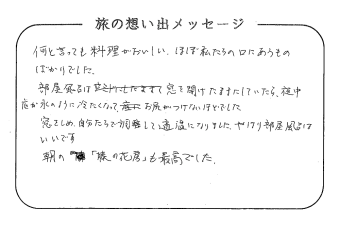 旅の想い出メッセージ
何と言っても料理がおいしい、ほぼ私たちの口にあうもの
ばかりでした。
部屋風呂は窓を開けたままにしていたら、夜中
床が氷のように冷たくなってお尻がつけないほどでした
窓をしめ、自分たちで調整して適温になりました。やはり部屋風呂は
いいです
朝の「旅の花房」も最高でした。